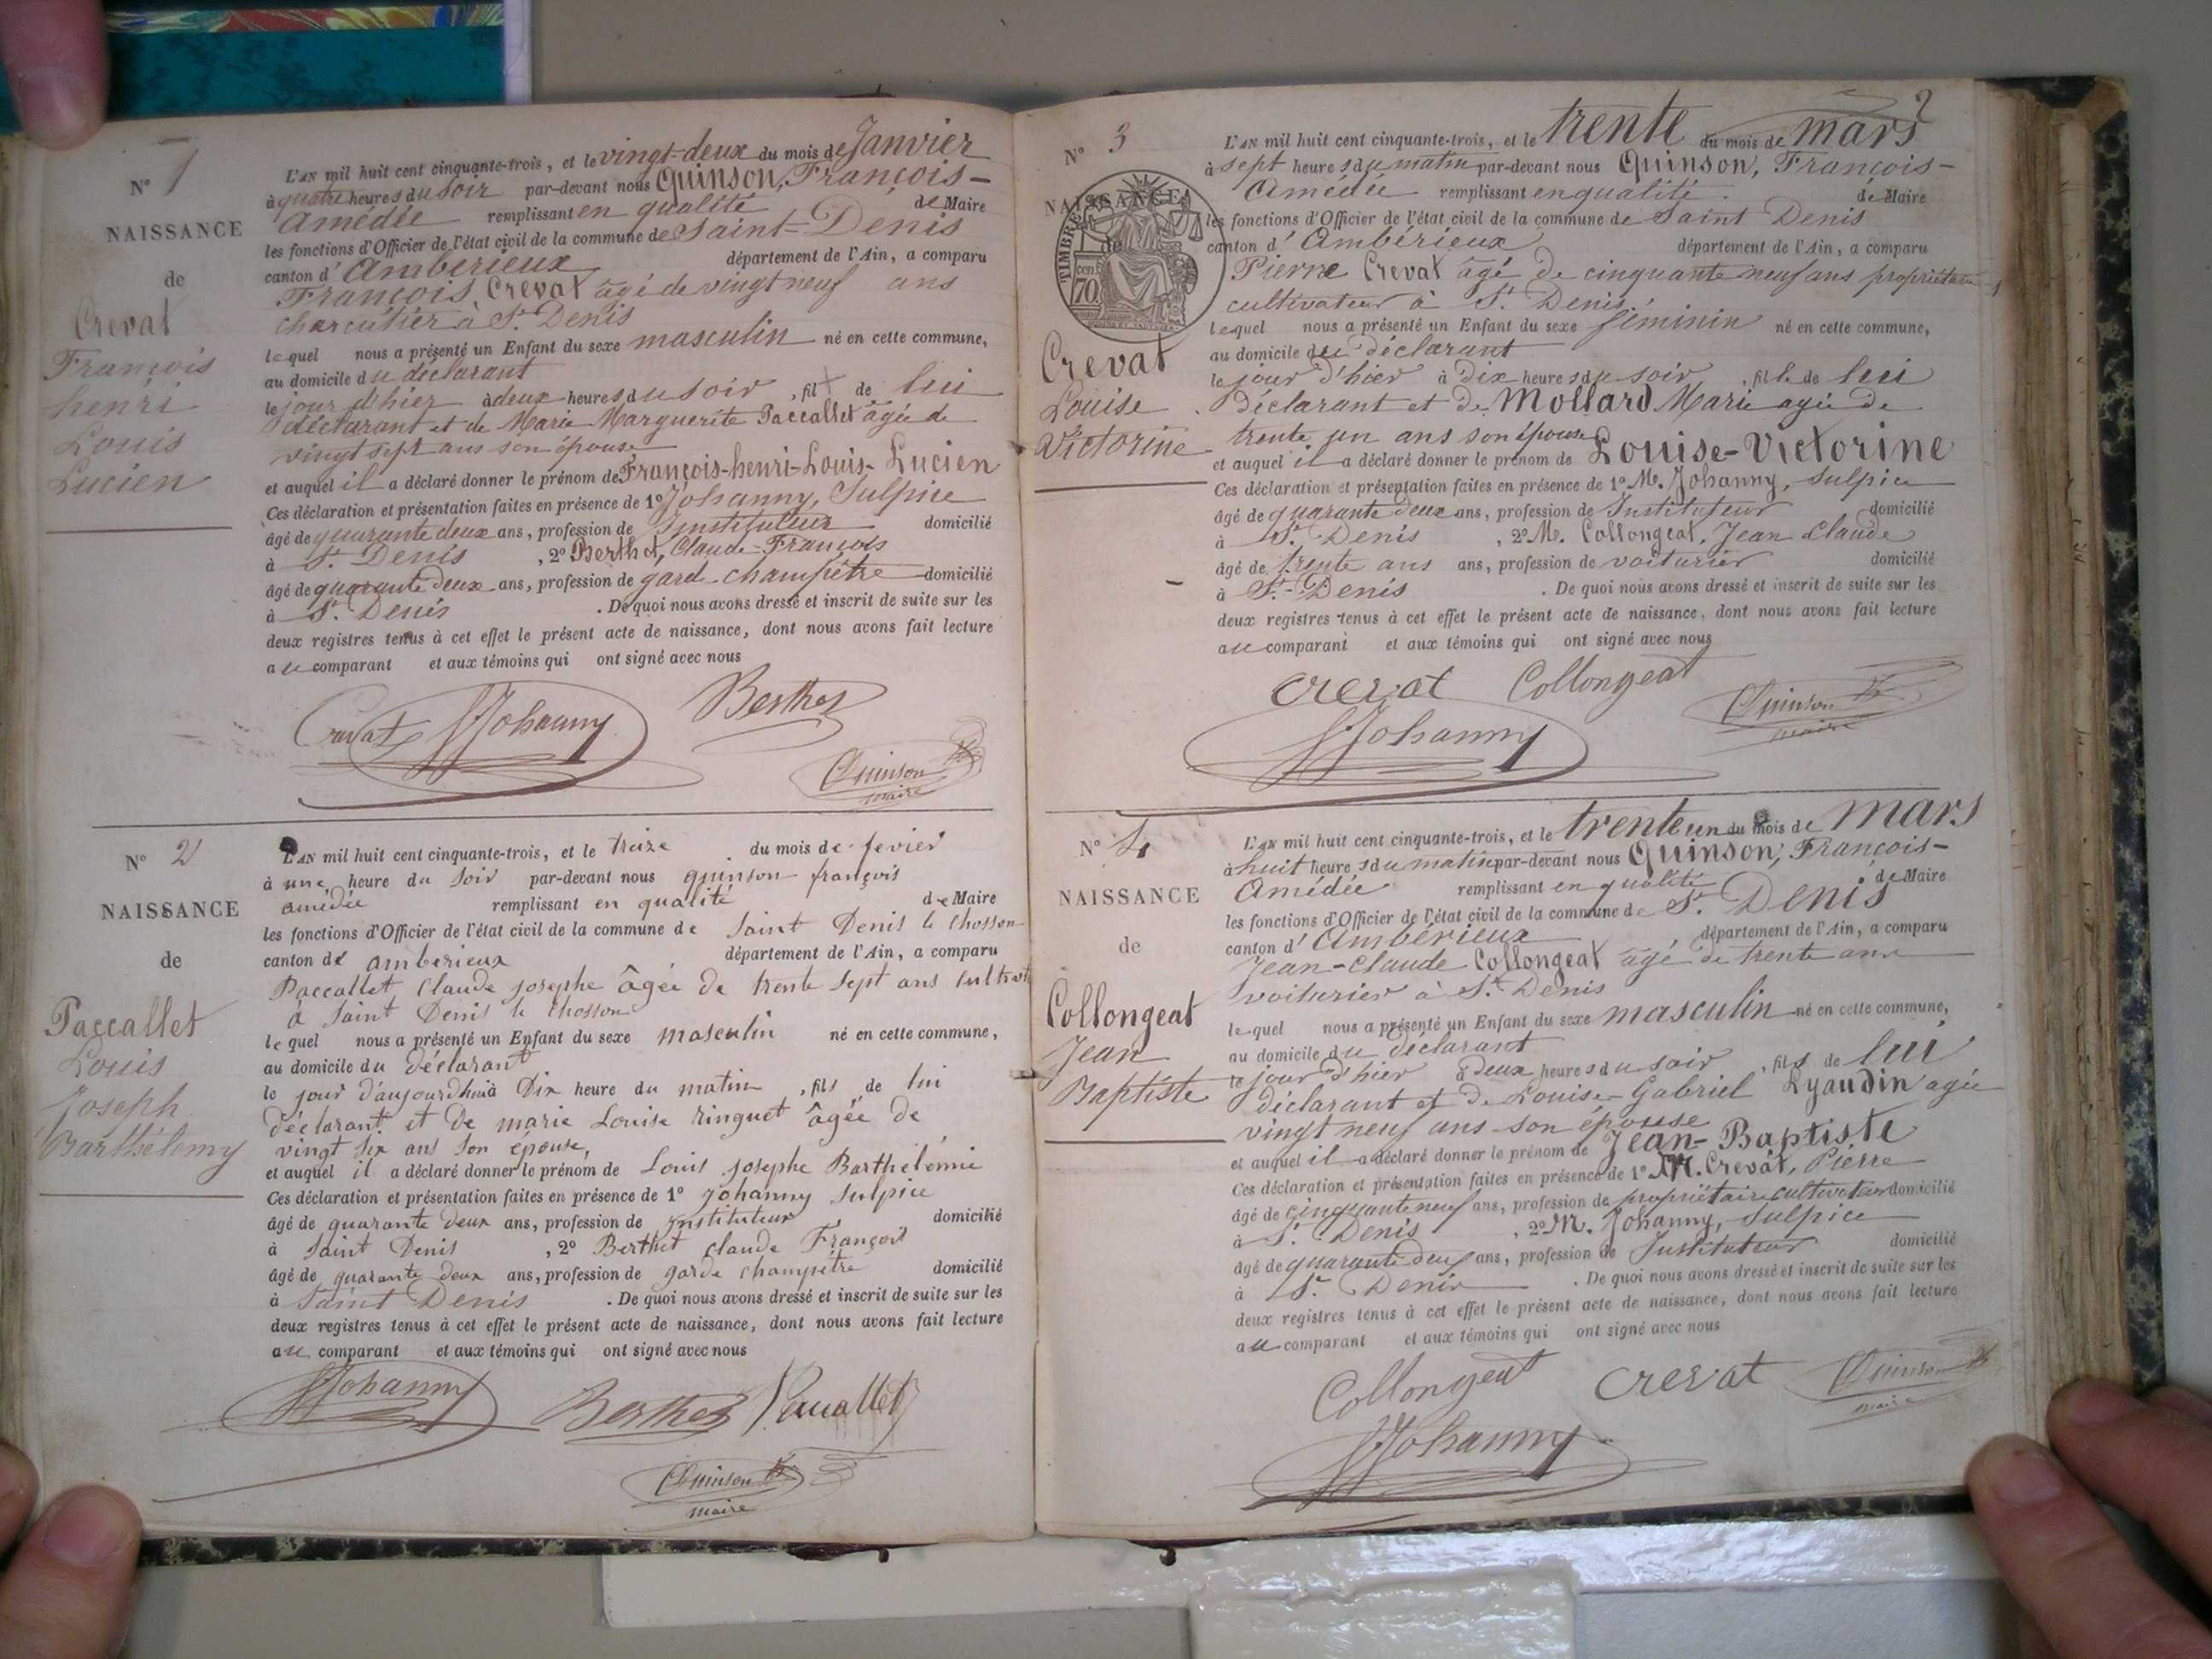 N° 1
NAISSANCE
de
Crevat
François
henri
Louis
Lucien
L'AN mil huit cent cinquante-trois, et le vingt-deux du mois de Janvier
à quatre heures du soir par-devant nous Quinson, François-
Amédée remplissant en qualité de Maire
les fonctions d'Officier de l'état civil de la commune de Saint-Denis
canton d'Ambérieux département de l'Ain, a comparu
François Crevat âgé de vingt neuf ans
charcutier à St. Denis
lequel nous a présenté un Enfant du sexe masculin né en cette commune,
au domicile du déclarant
le jour d'hier à deux heures du soir, fil de lui
déclarant et de Marie Marguerite Paccallet âgée de
vingt sept ans son épouse
et auquel il a déclaré donner le prénom de François-henri-Louis-Lucien
Ces déclaration et présentation faites en présence de 1° Johanny, Sulpice
âgé de quarante deux ans, profession de Instituteur domicilié
à St. Denis, 2° Berthet, Claude-François
âgé de quarante deux ans, profession de gard-champêtre domicilié
à St. Denis. De quoi nous avons dressé et inscrit de suite sur les
deux registres tenus à cet effet le présent acte de naissance, dont nous avons fait lecture
au comparant et aux témoins qui ont signé avec nous
Crevat Johanny Berthet
Quinson
maire
N° 2
NAISSANCE
de
Paccallet
Louis
Joseph
Barthélemy
L'AN mil huit cent cinquante-trois, et le treize du mois de fevier
à une heure du soir par-devant nous quinson françois
amédée remplissant en qualité de Maire
les fonctions d'Officier de l'état civil de la commune de Saint Denis le Chosson
canton de amberieux département de l'Ain, a comparu
Paccallet Claude josephe âgée de trente sept ans
à Saint Denis le Chosson
lequel nous a présenté un Enfant du sexe masculin né en cette commune,
au domicile du déclarant
le jour d'aujourdhuià Dix heure du matin, fils de lui
déclarant et de marie Louise ringuet âgée de
vingt six ans son épouse,
et auquel il a déclaré donner le prénom de Louis josephe Barthélémie
Ces déclaration et présentation faites en présence de 1° johanny Sulpice
âgé de quarante deux ans, profession de instituteur domicilié
à Saint Denis, 2° Berthet claude François
âgé de quarante deux ans, profession de garde champêtre domicilié
à Saint Denis. De quoi nous avons dressé et inscrit de suite sur les
deux registres tenus à cet effet le présent acte de naissance, dont nous avons fait lecture
au comparant et aux témoins qui ont signé avec nous
Johanny Berthet Paccallet
Quinson
maire
2
N° 3
NAISSANCE
de
TIMBRE
cen
70
Crevat
Louise
Victorine
L'AN mil huit cent cinquante-trois, et le trente du mois de mars
à sept heures du matin par-devant nous Quinson, François-
Amédée remplissant en qualité de Maire
les fonctions d'Officier de l'état civil de la commune de Saint Denis
canton d'Ambérieux département de l'Ain, a comparu
Pierre Crevat âgé de cinquante neuf ans propriétaire
cultivateur à St. Denis
lequel nous a présenté un Enfant du sexe féminin né en cette commune,
au domicile du déclarant
le jour d'hier à dix heures du soir, fille de lui
déclarant et de Mollard Marie agée de
trente un ans son épouse
et auquel il a déclaré donner le prénom de Louise-Victorine
Ces déclaration et présentation faites en présence de 1° M. Johanny, Sulpice
âgé de quarante deux ans, profession de Instituteur domicilié
à St. Denis, 2° M. Collongeat, Jean Claude
âgé de trente ans ans, profession de voiturier domicilié
à St.-Denis. De quoi nous avons dressé et inscrit de suite sur les
deux registres tenus à cet effet le présent acte de naissance, dont nous avons fait lecture
au comparant et aux témoins qui ont signé avec nous
crevat Collongeat
Johanny Quinson
maire
N° 4
NAISSANCE
de
Collongeat
Jean
Baptiste
L'AN mil huit cent cinquante-trois, et le trente un du mois de mars
à huit heures du matin par-devant nous Quinson, François-
Amédée remplissant en qualité de Maire
les fonctions d'Officier de l'état civil de la commune de St. Denis
canton d'Ambérieux département de l'Ain, a comparu
Jean-Claude Collongeat âgé de trente ans
voiturier à St. Denis
lequel nous a présenté un Enfant du sexe masculin né en cette commune,
au domicile du déclarant
le jour d'hier à deux heures du soir, fils de lui
déclarant et de Louise-Gabriel Lyaudin agée
vingt neuf ans son épouse
et auquel il a déclaré donner le prénom de Jean-Baptiste
Ces déclaration et présentation faites en présence de 1° M. Crevat, Pierre
âgé de cinquante neuf ans, profession de propriétaire cultivateur domicilié
à St. Denis, 2° M. Johanny, Sulpice
âgé de quarante deux ans, profession de Instituteur domicilié
à St. Denis. De quoi nous avons dressé et inscrit de suite sur les
deux registres tenus à cet effet le présent acte de naissance, dont nous avons fait lecture
au comparant et aux témoins qui ont signé avec nous
Collongeat crevat Quinson
maire
Johanny